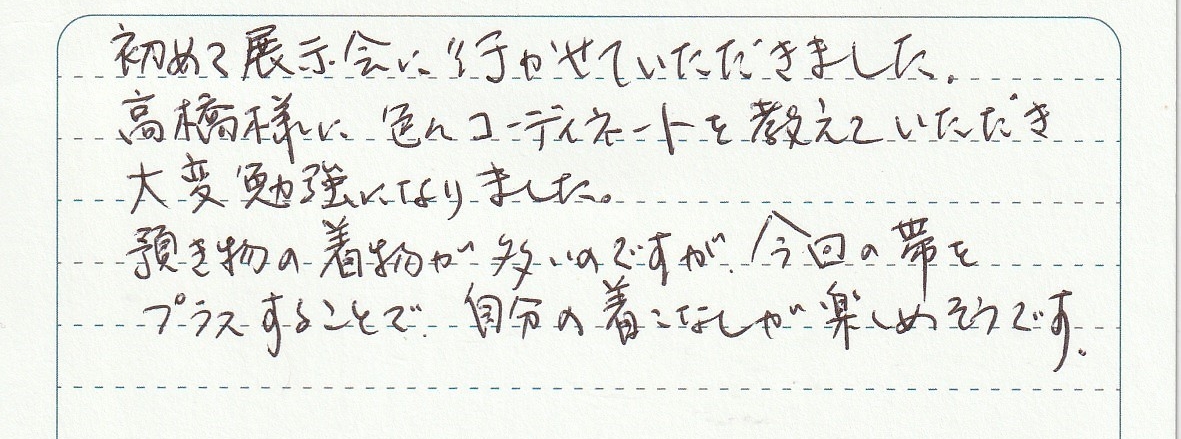 初めて展示会に行かせていただきました。
高橋様に色んコーディネートを教えていただき
大変勉強になりました。
頂き物の着物が多いのですが、今回の帯を
プラスすることで、自分の着こなしが楽しめそうです。